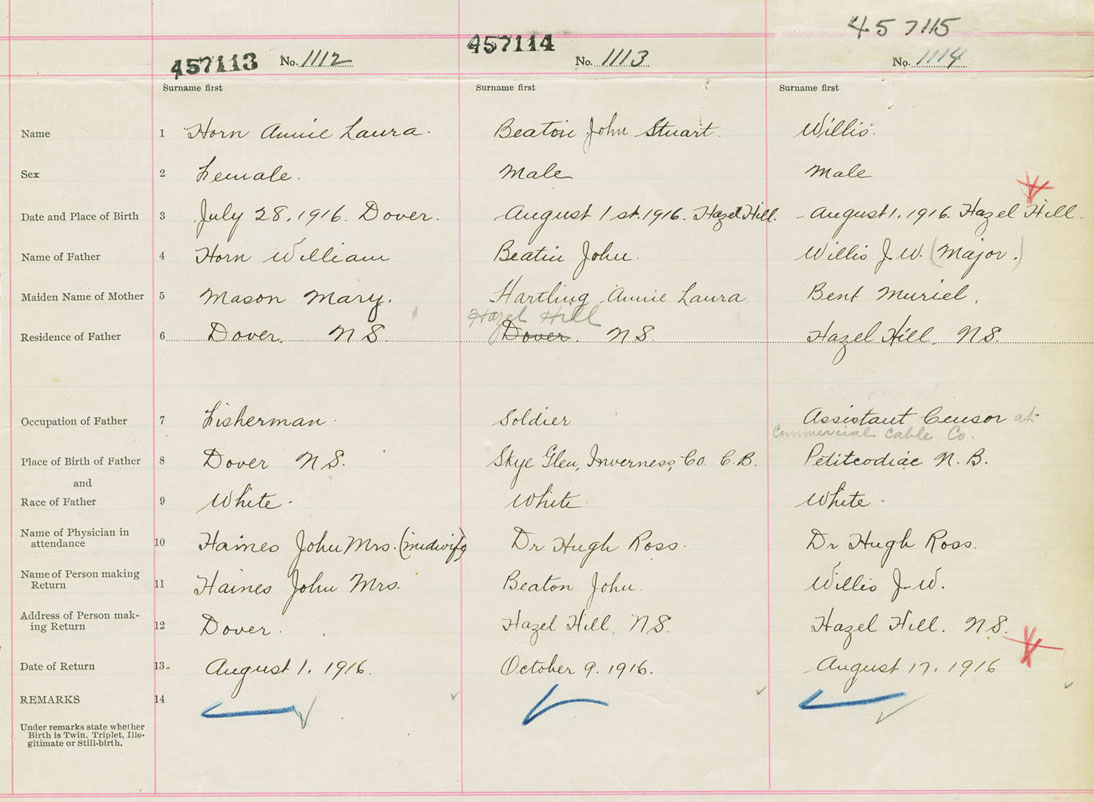 457115
457113 No. 1112 457114 No. 1113 No. 1114
Surname first Surname first Surname first
Name 1 Horn Annie Laura. Beaton John Stuart. Willis.
Sex 2 Female. Male Male
Date and Place of Birth 3 July 28, 1916. Dover. August 1st. 1916. Hazel Hill. August 1, 1916. Hazel Hill.
Name of Father 4 Horn William Beaton John. Willis J. W. (Major.)
Maiden Name of Mother 5 Mason Mary. Hartling Annie Laura Bent Muriel.
Hazel Hill
Residence of Father 6 Dover. N S. Dover. N S. Hazel Hill. N S.
Occupation of Father 7 Fisherman. Soldier Assistant Censor at
Commercial Cable Co.
Place of Birth of Father 8 Dover N S. Skye Glen, Inverness, Co. C. B. Petitcodiac N. B.
and
Race of Father 9 White. White. White.
Name of Physician in
attendance 10 Haines John Mrs. (midwife) Dr Hugh Ross. Dr Hugh Ross.
Name of Person making
Return 11 Haines John Mrs. Beaton John. Willis J. W.
Address of Person mak-
ing Return 12 Dover. Hazel Hill. N S. Hazel Hill. N S.
Date of Return 13. August 1, 1916. October 9. 1916. August 17, 1916
REMARKS 14
Under remarks state whether
Birth is Twin, Triplet, Ille-
gitimate or Still-birth.